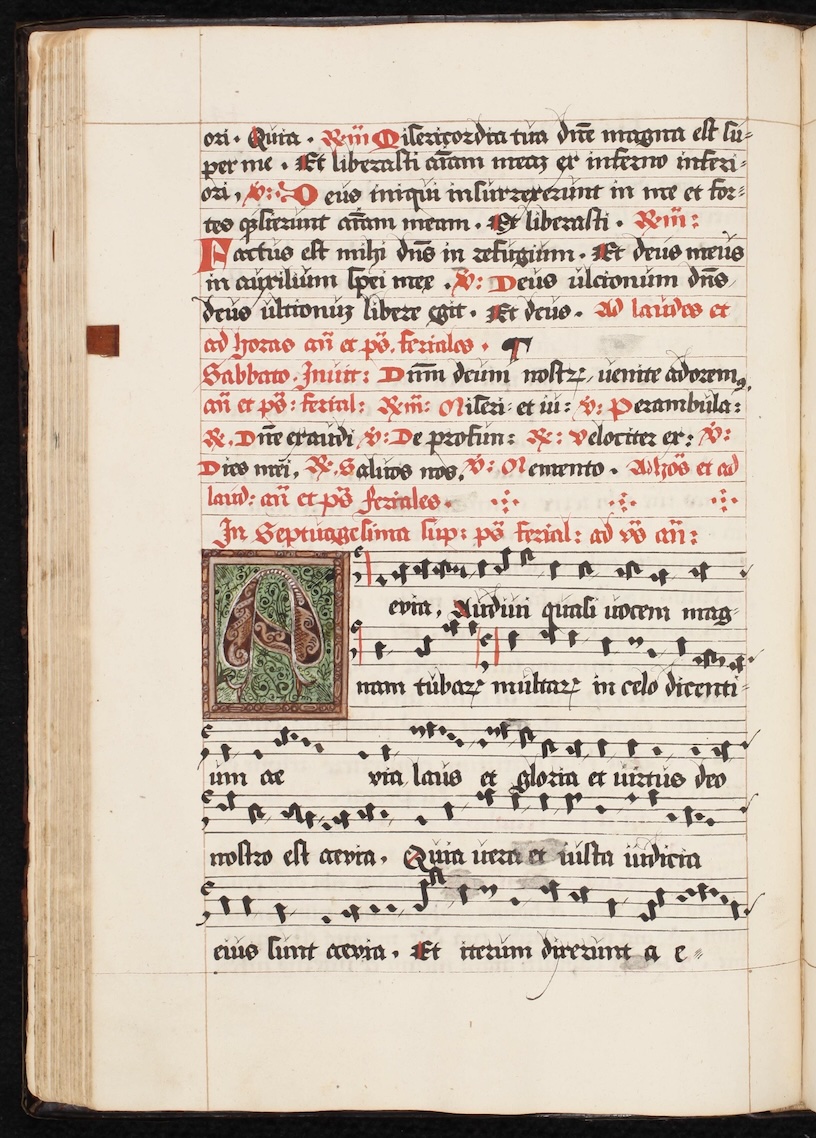 ori. Quia. Rm̄ Misericordia tua dn̄e magna est su-
per me. Et liberasti aīam meaʒ ex inferno inferi-
ori, v: Deus iniqui insurrexerunt in me et for-
tes q̄sierunt aīam meam. Et liberasti. Rm̄:
Factus est mihi dn̄s in refugium. Et deus meus
in auxilium spei mee. v: Deus ulcionum dn̄s
deus ultionuʒ libere egit. Et deus. Ad laudes et
ad horas añ et ps̄. feriales. ¶
Sabbato. Inuit: Dn̄m deum nostrꝝ, uenite adoremꝰ,
añ et ps̄: ferial: Rm̄: Miseri: et iii: v: Perambula:
R. Dn̄e exaudi v: De profun: R: Velociter ex: v:
Dies mēi, R. Saluos nos, v: Memento. Ad ho᷒s et ad
laud: añ et ps̄ feriales.
In Septuagesima sup: ps̄ ferial: ad vs̄ añ:
A
evia, Audiui quasi uocem mag-
nam tubaꝝ multaꝝ in celo dicenti-
um ae via laus et gloria et uirtus deo
nostro est aevia. Quia uera et iusta iudicia
eius sunt aevia. Et iterum dixerunt a e-